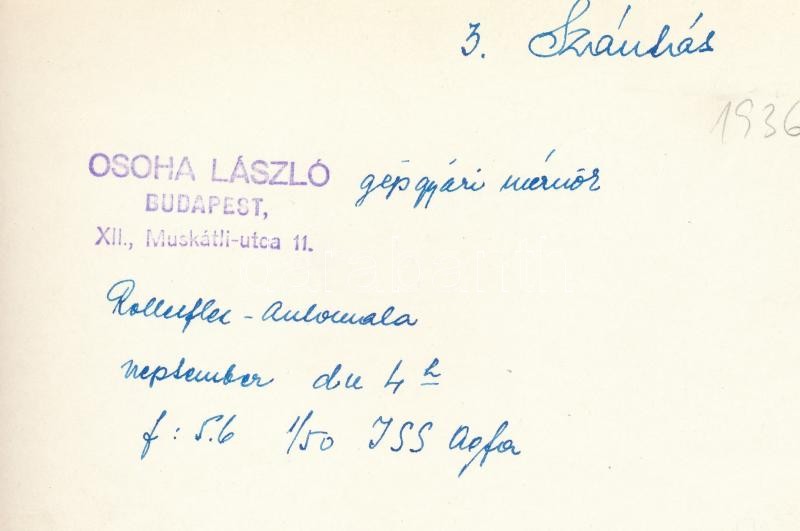 3. Szántás
1936
OSOHA LÁSZLÓ gépgyári mérnök
BUDAPEST,
XII., Muskátli-utca 11.
Rolleiflex - Automata
szeptember du 4 h
f: 5.6 1/50 ISS Agfa